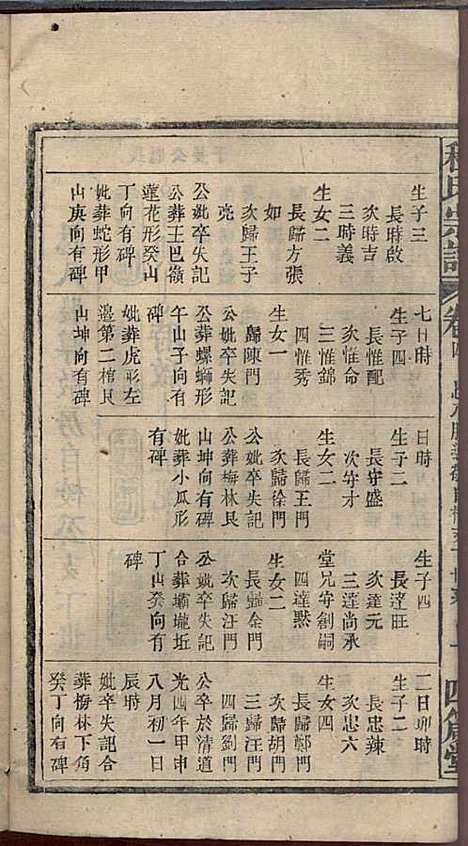 生子三
長時啟
次時吉
三時義
生女二
長歸方張
次歸王子
如
亮
公妣卒失記
公葬王巴嶺
蓮花形癸山
丁向有碑
妣葬蛇形甲
山庚向有碑
七日時
生子四
長惟配
次惟命
三惟錦
四惟秀
生女一
歸陳門
公妣卒失記
公葬螺螄形
午山子向有
碑
妣葬虎形左
邊第二棺艮
山坤向有碑
日時
生子二
長守盛
次守才
生女二
長歸王門
次歸徐門
公妣卒失記
公葬梅林艮
山坤向有碑
妣葬小瓜形
有碑
生子四
長達旺
次達元
三達尚承
堂兄守創嗣
四達黙
生女二
長歸金門
次歸汪門
公妣卒失記
合葬壩壠坵
丁山癸向有
碑
二日卯時
生子二
長忠辣
次忠六
生女四
長歸鄭門
次歸胡門
三歸汪門
四歸劉門
公卒於清道
光四年甲申
八月初一日
辰時
妣卒失記合
葬梅林下角
癸丁向有碑
氏宗譜
卷四